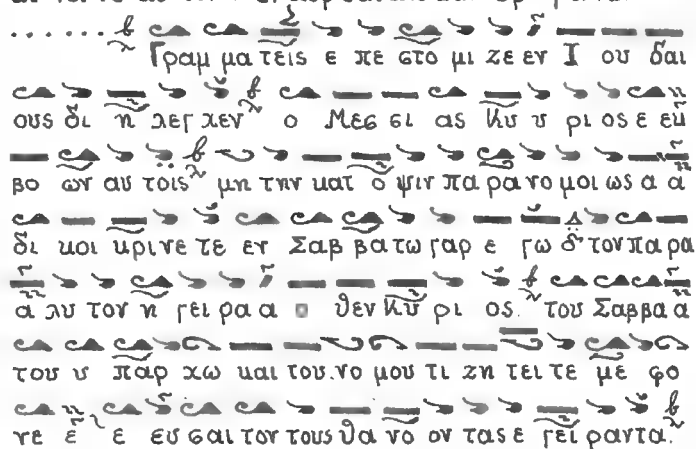 Γραμ μα τεις ε πε στο μι ζε εν Ι ου δαι
ους δι η λεγ χεν ο Μεσ σι ας Κυ υ ρι ος ε εμ
βο ων αυ τοις μη την κατ ο ψιν πα ρα νο μοι ως α α
δι κοι κρινε τε εν Σαβ βα τω γαρ ε γω τον παρα
α λυ τον η γει ρα α ο θεν Κυ ρι ος. του Σαββα α
του υ παρ χω και του νο μου τι ζη τει τε με φο
νε ε ε ευ σαι τον τους θα νο ον τας ε γει ραντα.